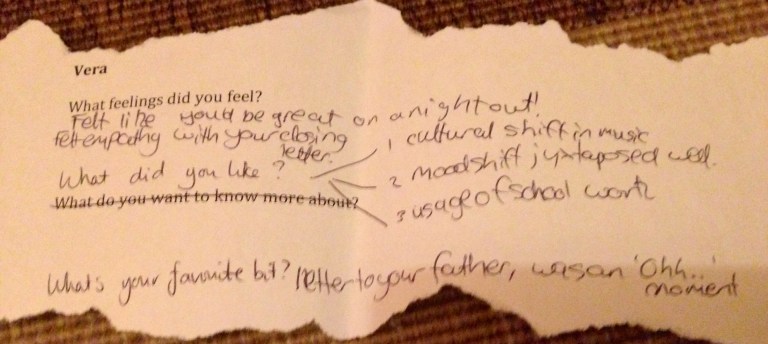 Vera
What feelings did you feel?
Felt like you'd be great on a night out!
felt empathy with your closing
letter.
What did you like?
1 cultural shift in music
2 mood shift juxtaposed well.
3 usage of school work
What do you want to know more about?
What's your favourite bit? letter to your father, was an 'Ohh..'
moment